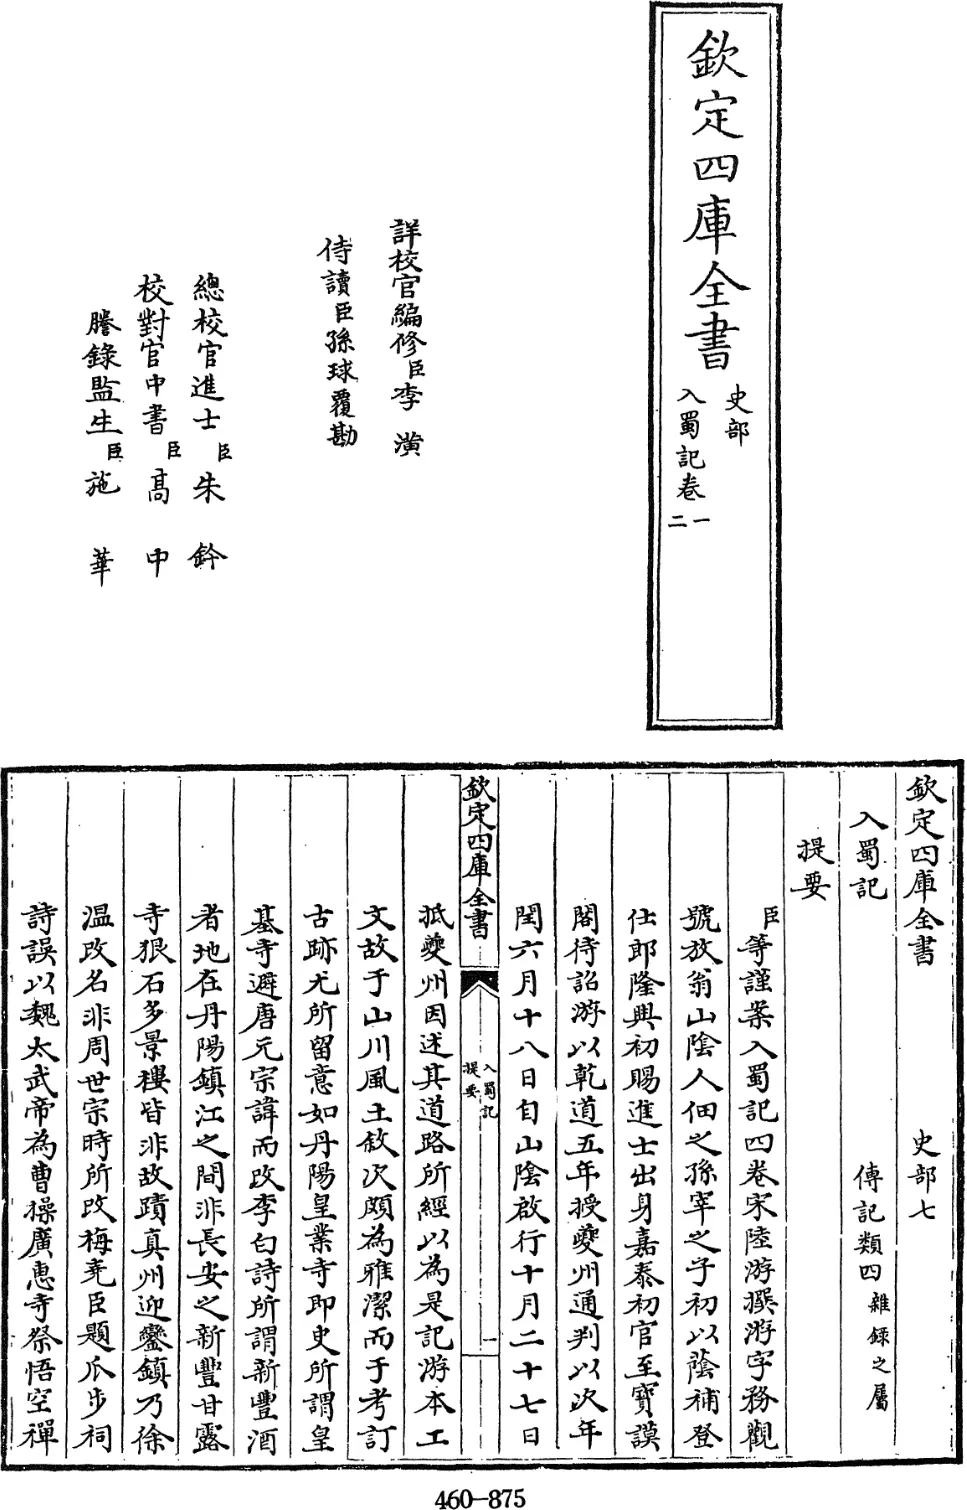 欽定四庫全書
史部
入蜀記卷一二
詳校官編修臣李潢
侍讀臣孫球覆勘
總校官進士臣朱鈐
校對官中書臣高中
謄錄監生臣施華
欽定四庫全書 史部七
入蜀記 傳記類四雜錄之屬
提要
臣等謹案入蜀記四卷宋陸游撰游字務觀
號放翁山陰人佃之孫宰之子初以蔭補登
仕郎隆興初賜進士出身嘉泰初官至寶謨
閣待詔游以乾道五年授夔州通判以次年
閏六月十八日自山陰啟行十月二十七日
欽定四庫全書 入蜀記提要 一
抵夔州因述其道路所經以為是記游本工
文故于山川風土敘次頗為雅潔而于考訂
古跡尤所留意如丹陽皇業寺即史所謂皇
基寺避唐元宗諱而改李白詩所謂新豐酒
者地在丹陽鎮江之間非長安之新豐甘露
寺狠石多景樓皆非故蹟真州迎鑾鎮乃徐
溫改名非周世宗時所改梅堯臣題瓜步祠
詩誤以魏太武帝為曹操廣惠寺祭悟空禪
460-875